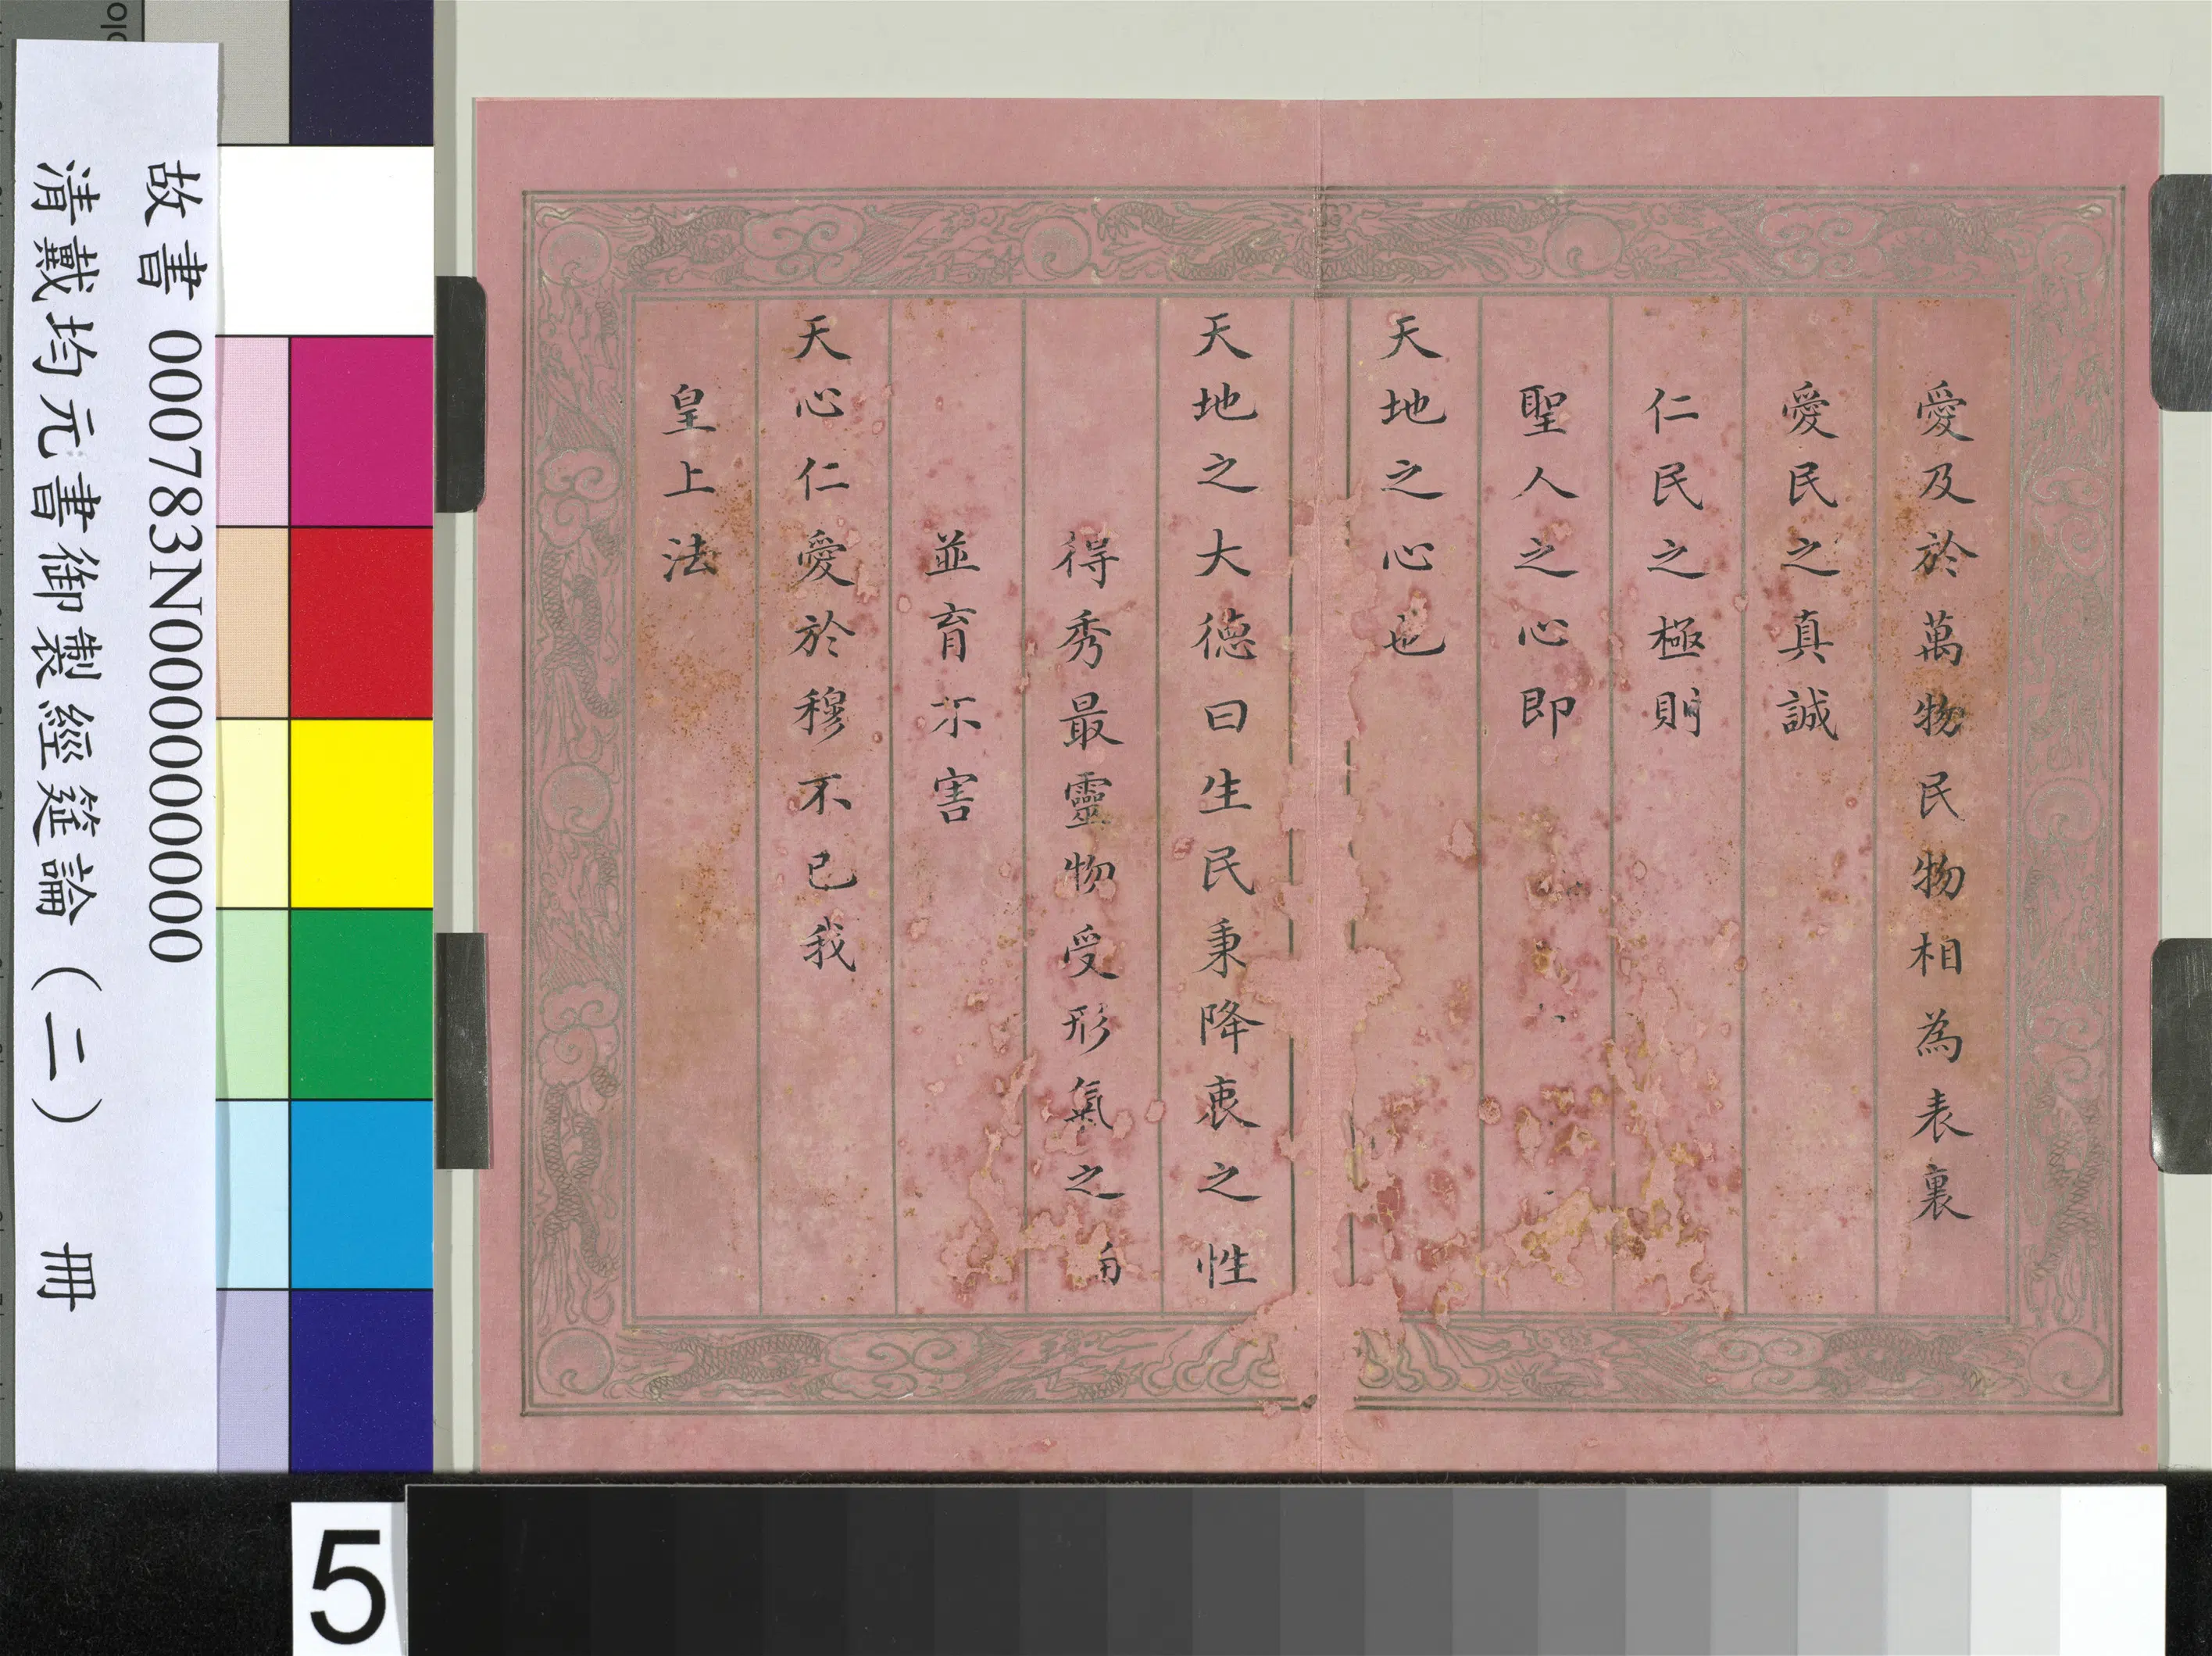 愛及於萬物民物相為表裏
愛民之真誠
仁民之極則
聖人之心即
天地之心也
天地之大德曰生民秉降衷之性
得秀最靈物受形氣之
並育不害
天心仁愛於穆不已我
皇上法
故書 000783N000000000
清戴均元書御製經筵論（二） 冊
5